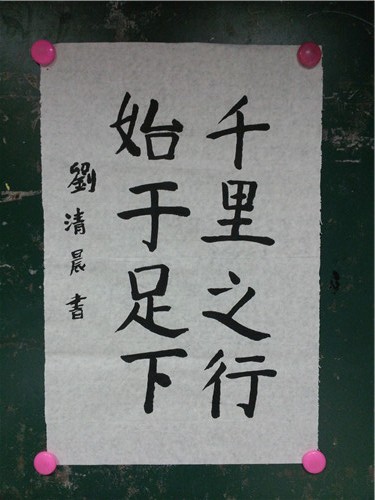 千里之行
始于足下
劉清晨書